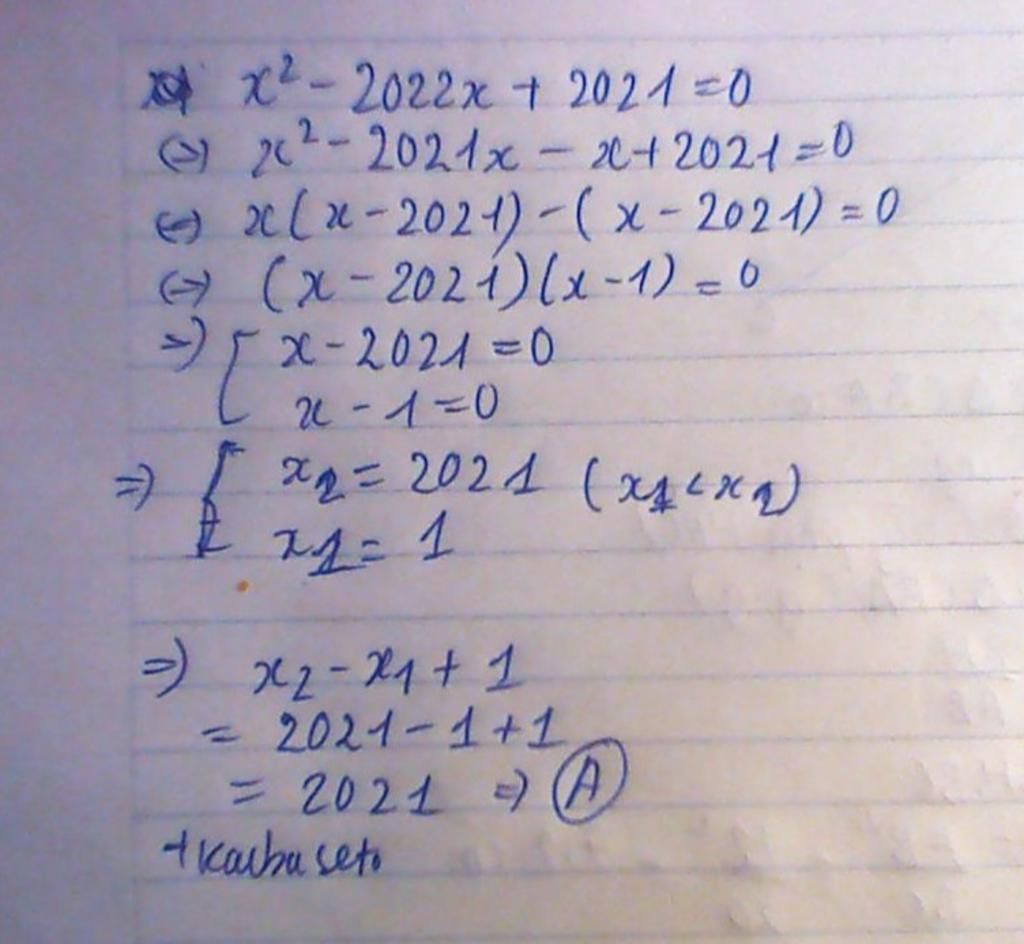 x² - 2022x + 2021 = 0
(=) x² - 2021x - x + 2021 = 0
(=) x(x - 2021) - (x - 2021) = 0
(=) (x - 2021)(x - 1) = 0
=) [ x - 2021 = 0
x - 1 = 0
=) [ x₂ = 2021 (x₁ < x₂)
x₁ = 1
=) x₂ - x₁ + 1
= 2021 - 1 + 1
= 2021 =) A